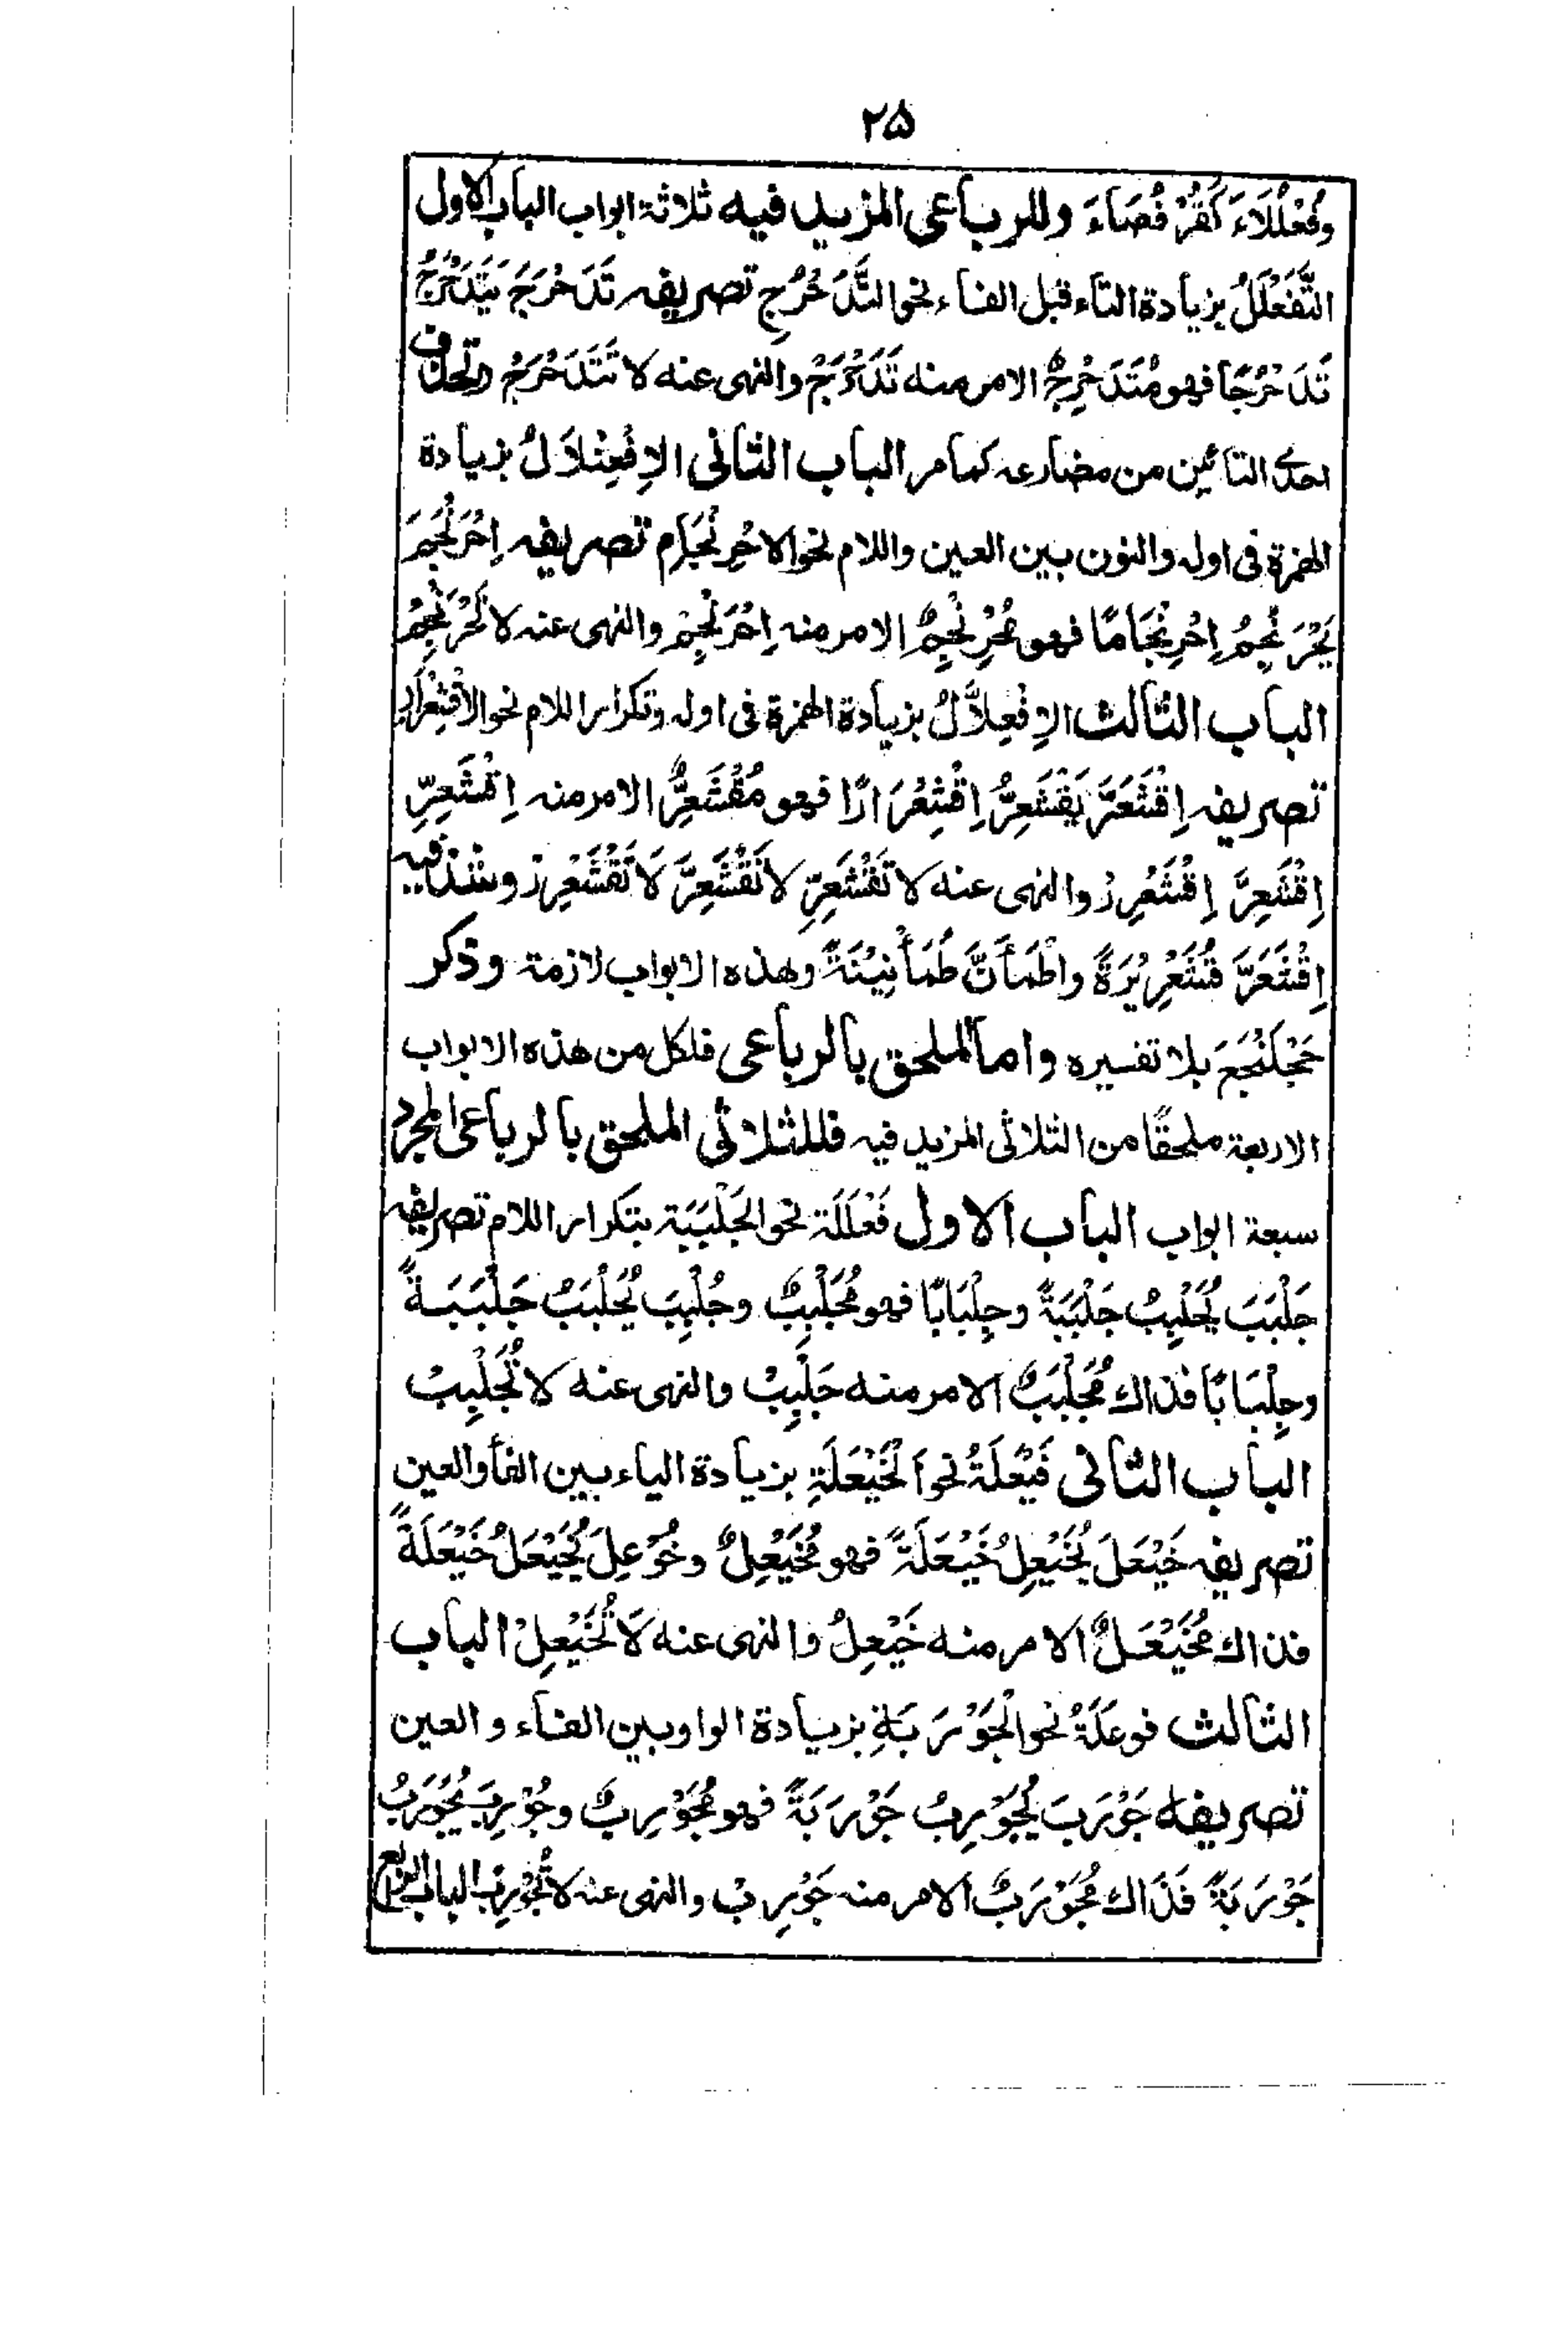 ۲۵
وفُعْلُلَاءَ كَقُرْفُصَاءَ وللرباعى المزيد فيه ثلاثة ابواب الباب الاول
التَّفَعْلُلُ بزيادة التاء قبل الفاء نحو التَّدَحْرُجِ تصريفه تَدَحْرَجَ يَتَدَحْرَجُ
تَدَحْرُجًا فهو مُتَدَحْرِجٌ الامر منه تَدَحْرَجْ والنهى عنه لا تَتَدَحْرَجْ وتحذف
احدى التائين من مضارعه كما مر الباب الثانى الاِفْعِنْلَالُ بزيادة
الهمزة فى اوله والنون بين العين واللام نحو الاحْرِنْجَامِ تصريفه اِحْرَنْجَمَ
يَحْرَنْجِمُ اِحْرِنْجَامًا فهو مُحْرَنْجِمٌ الامر منه اِحْرَنْجِمْ والنهى عنه لا تَحْرَنْجِمْ
الباب الثالث الاِفْعِلَّالُ بزيادة الهمزة فى اوله وتكرار اللام نحو الاِقْشِعْرَارِ
تصريفه اِقْشَعَرَّ يَقْشَعِرُّ اِقْشِعْرَارًا فهو مُقْشَعِرٌّ الامر منه اِقْشَعِرِّ
اِقْشَعِرَّ اِقْشَعْرِرْ والنهى عنه لا تَقْشَعِرِّ لا تَقْشَعِرَّ لَا تَقْشَعْرِرْ وشذ فيه
اِقْشَعَرَّ قُشَعْرِيْرَةً واطْمَأَنَّ طُمَأْنِيْنَةً وهذه الابواب لازمة وذكر
جَحْلَنْجَعَ بلا تفسيره واما الملحق بالرباعى فلكل من هذه الابواب
الاربعة ملحقًا من الثلاثى المزيد فيه فللثلاثى الملحق بالرباعى المجرد
سبعة ابواب الباب الاول فَعْلَلَة نحو الجَلْبَبَة بتكرار اللام تصريفه
جَلْبَبَ يُجَلْبِبُ جَلْبَبَةً وجِلْبَابًا فهو مُجَلْبِبٌ وجُلْبِبَ يُجَلْبَبُ جَلْبَبَةً
وجِلْبَابًا فذاك مُجَلْبَبٌ الامر منه جَلْبِبْ والنهى عنه لا تُجَلْبِبْ
الباب الثانى فَيْعَلَةُ نحو اَلْخَيْعَلَةِ بزيادة الياء بين الفأ والعين
تصريفه خَيْعَلَ يُخَيْعِلُ خَيْعَلَةً فهو مُخَيْعِلٌ وخُوْعِلَ يُخَيْعَلُ خَيْعَلَةً
فذاك مُخَيْعَلٌ الامر منه خَيْعِلْ والنهى عنه لَا تُخَيْعِلْ الباب
الثالث فوعَلَةُ نحو الْجَوْرَبَةِ بزيادة الواو بين الفاء والعين
تصريفه جَوْرَبَ يُجَوْرِبُ جَوْرَبَةً فهو مُجَوْرِبٌ وجُوْرِبَ يُجَوْرَبُ
جَوْرَبَةً فَذَاك مُجَوْرَبٌ الامر منه جَوْرِبْ والنهى عنه لا تُجَوْرِبْ الباب الرابع